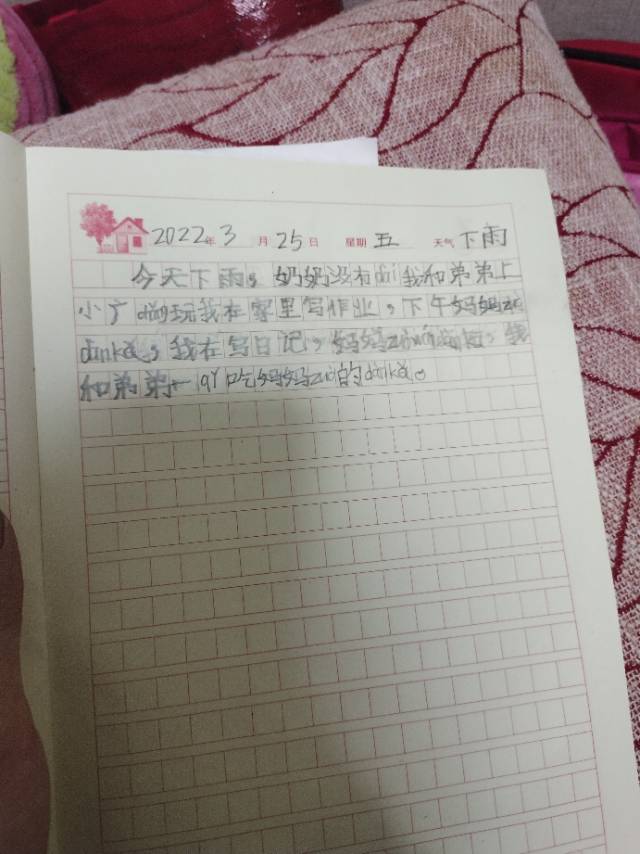 2022年3月25日 星期五 天气下雨
今天下雨，奶奶没有dai我和弟弟上
小广chang玩我在家里写作业，下午妈妈zuo
dànkǎ，我在写日记，妈妈zuò 我
和弟弟一qǐ吃妈妈zuò的dànkǎ。